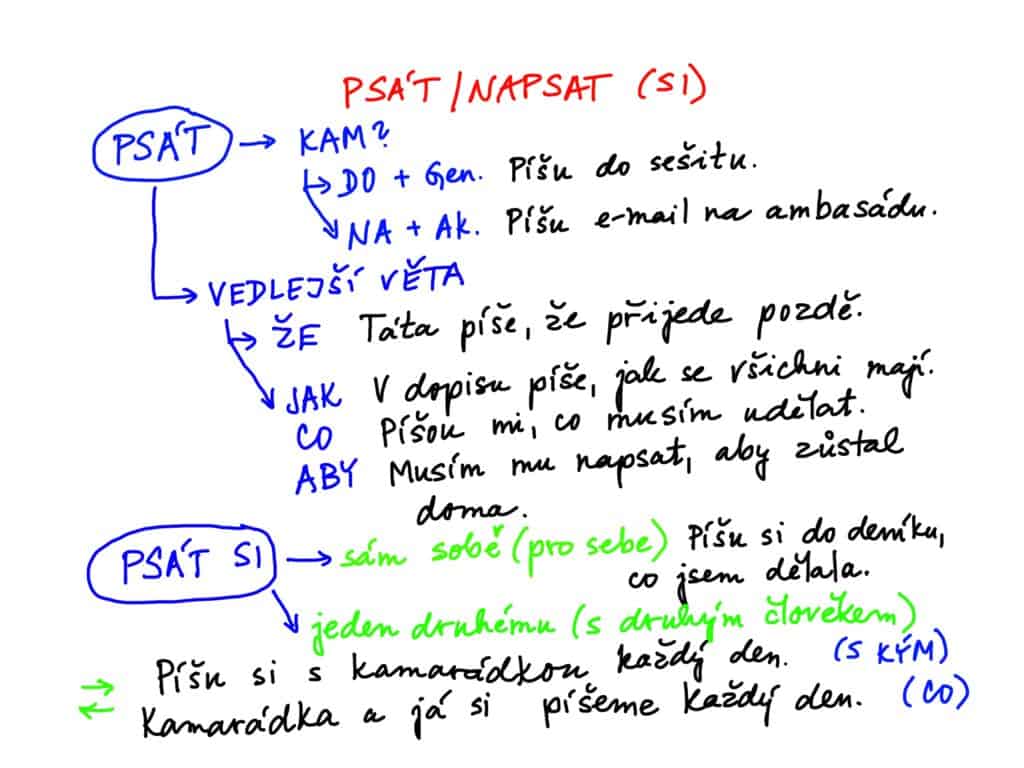 PSÁT/NAPSAT (SI)
PSÁT → KAM?
DO + Gen. Píšu do sešitu.
NA + Ak. Píšu e-mail na ambasádu.
VEDLEJŠÍ VĚTA
ŽE Táta píše, že přijede pozdě.
JAK V dopisu píše, jak se všichni mají.
CO Píšou mi, co musím udělat.
ABY Musím mu napsat, aby zůstal
doma.
PSÁT SI → sám sobě (pro sebe) Píšu si do deníku,
co jsem dělala.
jeden druhému (s druhým člověkem)
Píšu si s kamarádkou každý den. (S KÝM)
Kamarádka a já si píšeme každý den. (CO)